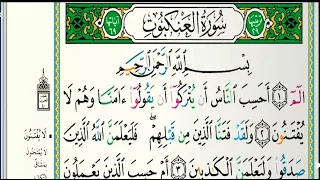 سُورَةُ الْعَنكَبُوتِ
بِسْمِ اللَّهِ الرَّحْمَٰنِ الرَّحِيمِ
الٓمٓ ١ أَحَسِبَ النَّاسُ أَن يُتْرَكُوٓا۟ أَن يَقُولُوٓا۟ ءَامَنَّا وَهُمْ لَا
يُفْتَنُونَ ٢ وَلَقَدْ فَتَنَّا الَّذِينَ مِن قَبْلِهِمْ ۖ فَلَيَعْلَمَنَّ اللَّهُ الَّذِينَ
صَدَقُوا۟ وَلَيَعْلَمَنَّ الْكَٰذِبِينَ ٣ أَمْ حَسِبَ الَّذِينَ يَعْمَلُونَ
لَا يُفْتَنُونَ